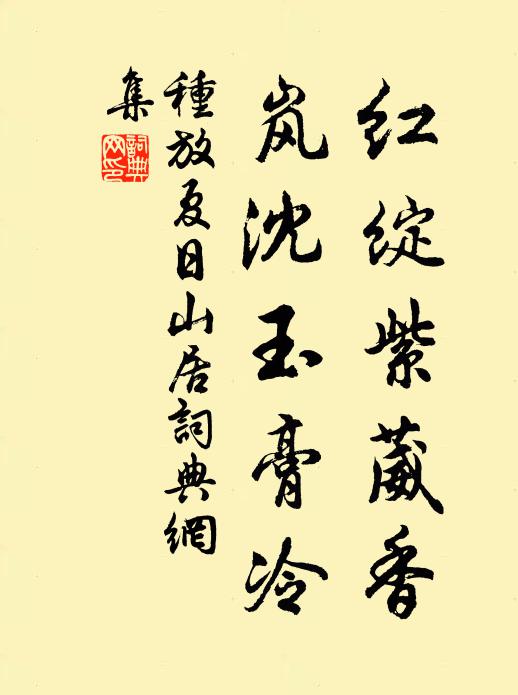 红绽紫葳香
岚沈玉膏冷
種放夏日山居詞典網
集
詞典
网印